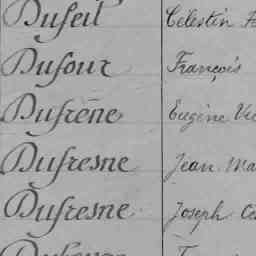 Dufeil Célestin
Dufour François
Dufrêne Eugène
Dufresne Jean
Dufresne Joseph